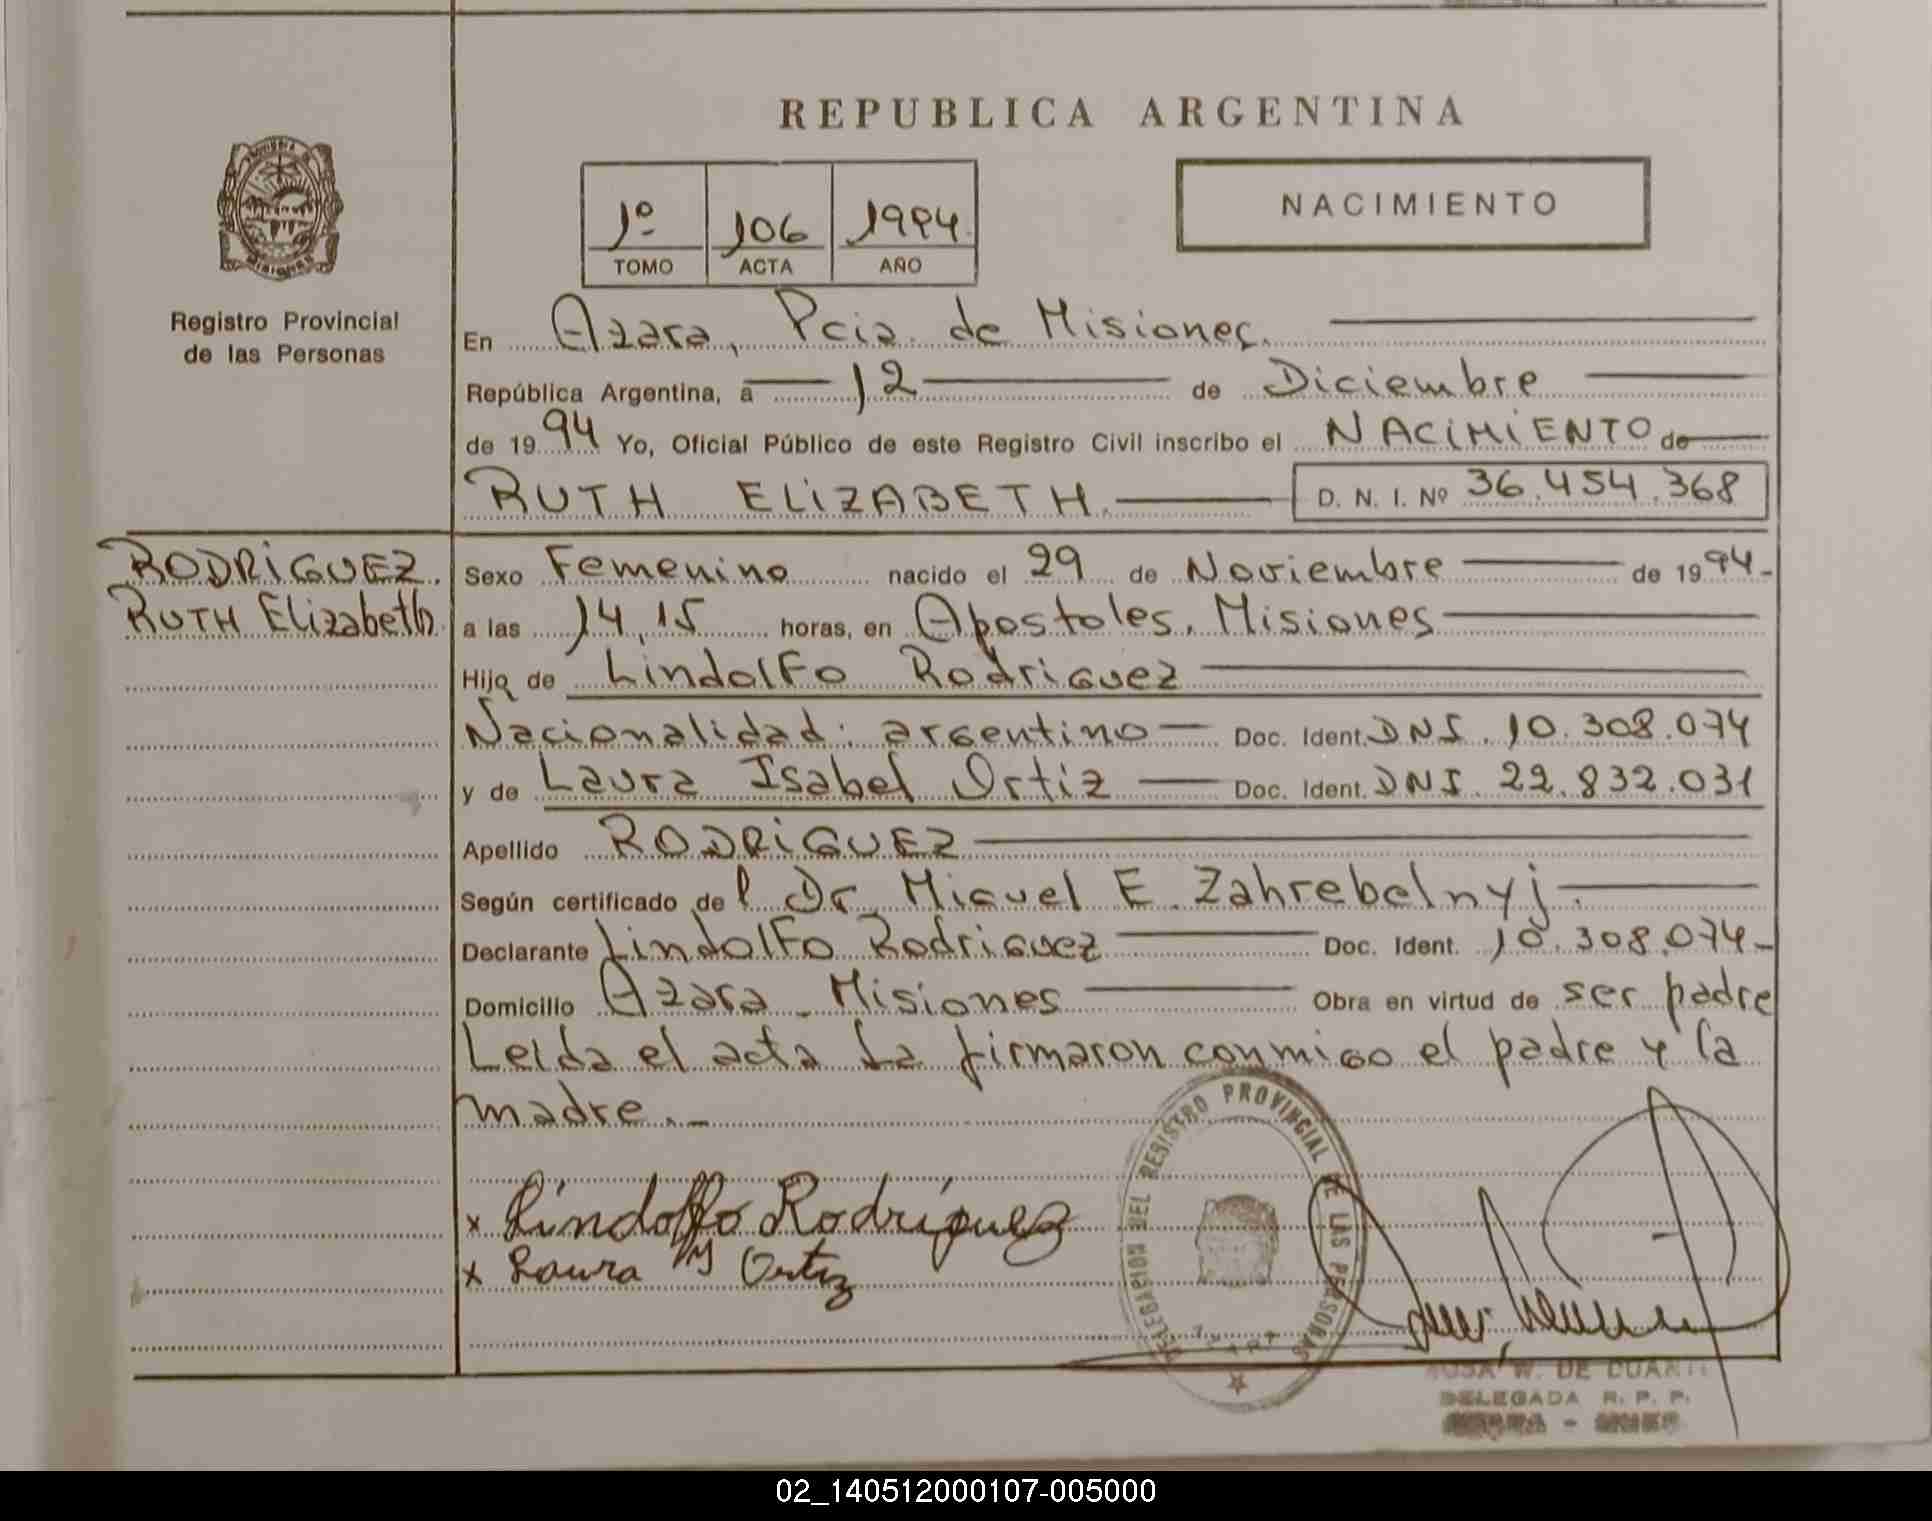 REPUBLICA ARGENTINA
NACIMIENTO
1º 106 1994
TOMO ACTA AÑO
Registro Provincial
de las Personas
En Azara, Pcia. de Misiones.
República Argentina, a 12 de Diciembre
de 1994 Yo, Oficial Público de este Registro Civil inscribo el NACIMIENTO de
RUTH ELIZABETH. D. N. I. Nº 36.454.368
RODRIGUEZ.
RUTH Elizabeth
Sexo Femenino nacido el 29 de Noviembre de 1994-
a las 14,15 horas, en Apostoles, Misiones
Hija de Lindolfo Rodriguez
Nacionalidad: argentino Doc. Ident. DNI. 10.308.074
y de Laura Isabel Ortiz Doc. Ident. DNI. 22.832.031
Apellido RODRIGUEZ
Según certificado del Dr. Miguel E. Zahrebelnyj.
Declarante Lindolfo Rodriguez Doc. Ident. 10.308.074-
Domicilio Azara - Misiones Obra en virtud de ser padre
Leida el acta la firmaron conmigo el padre y la
madre.-
x Lindolfo Rodríguez
x Laura Y Ortiz
DELEGACION DEL REGISTRO PROVINCIAL DE LAS PERSONAS
AZARA
W. DE DUARTE
DELEGADA R. P. P.
02_140512000107-005000